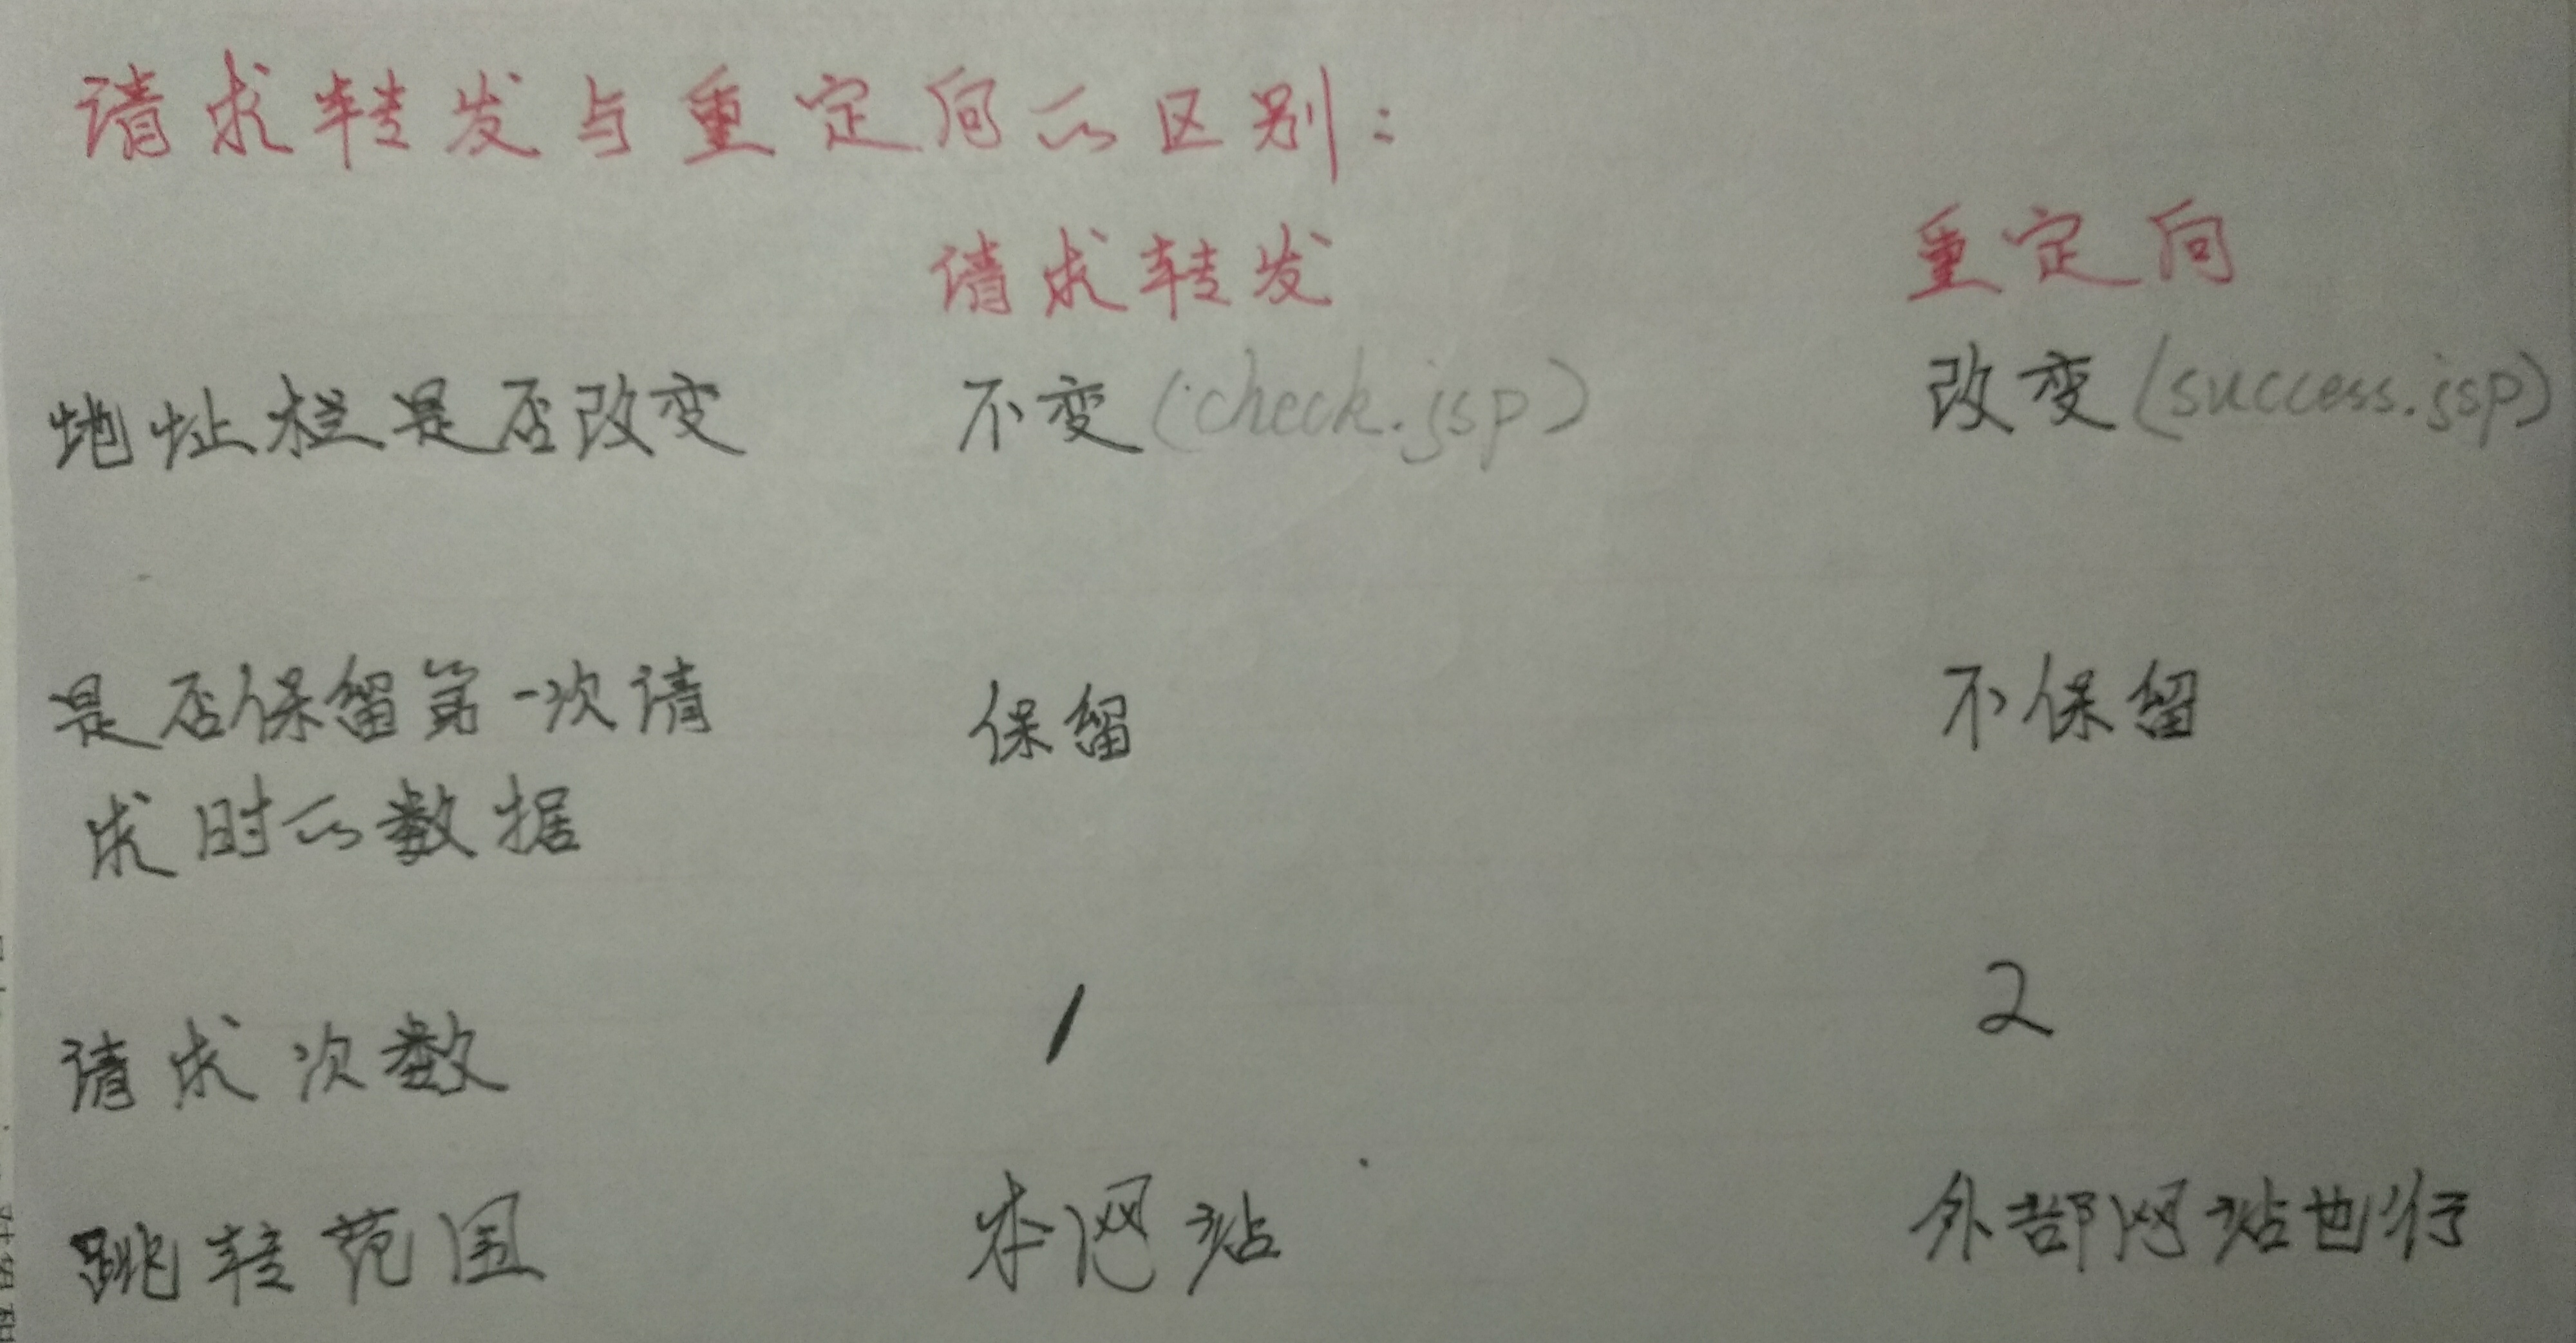 请求转发与重定向的区别:
请求转发 重定向
地址栏是否改变 不变(check.jsp) 改变(success.jsp)
是否保留第一次请 保留 不保留
求时的数据
请求次数 1 2
跳转范围 本网站 外部网站也行